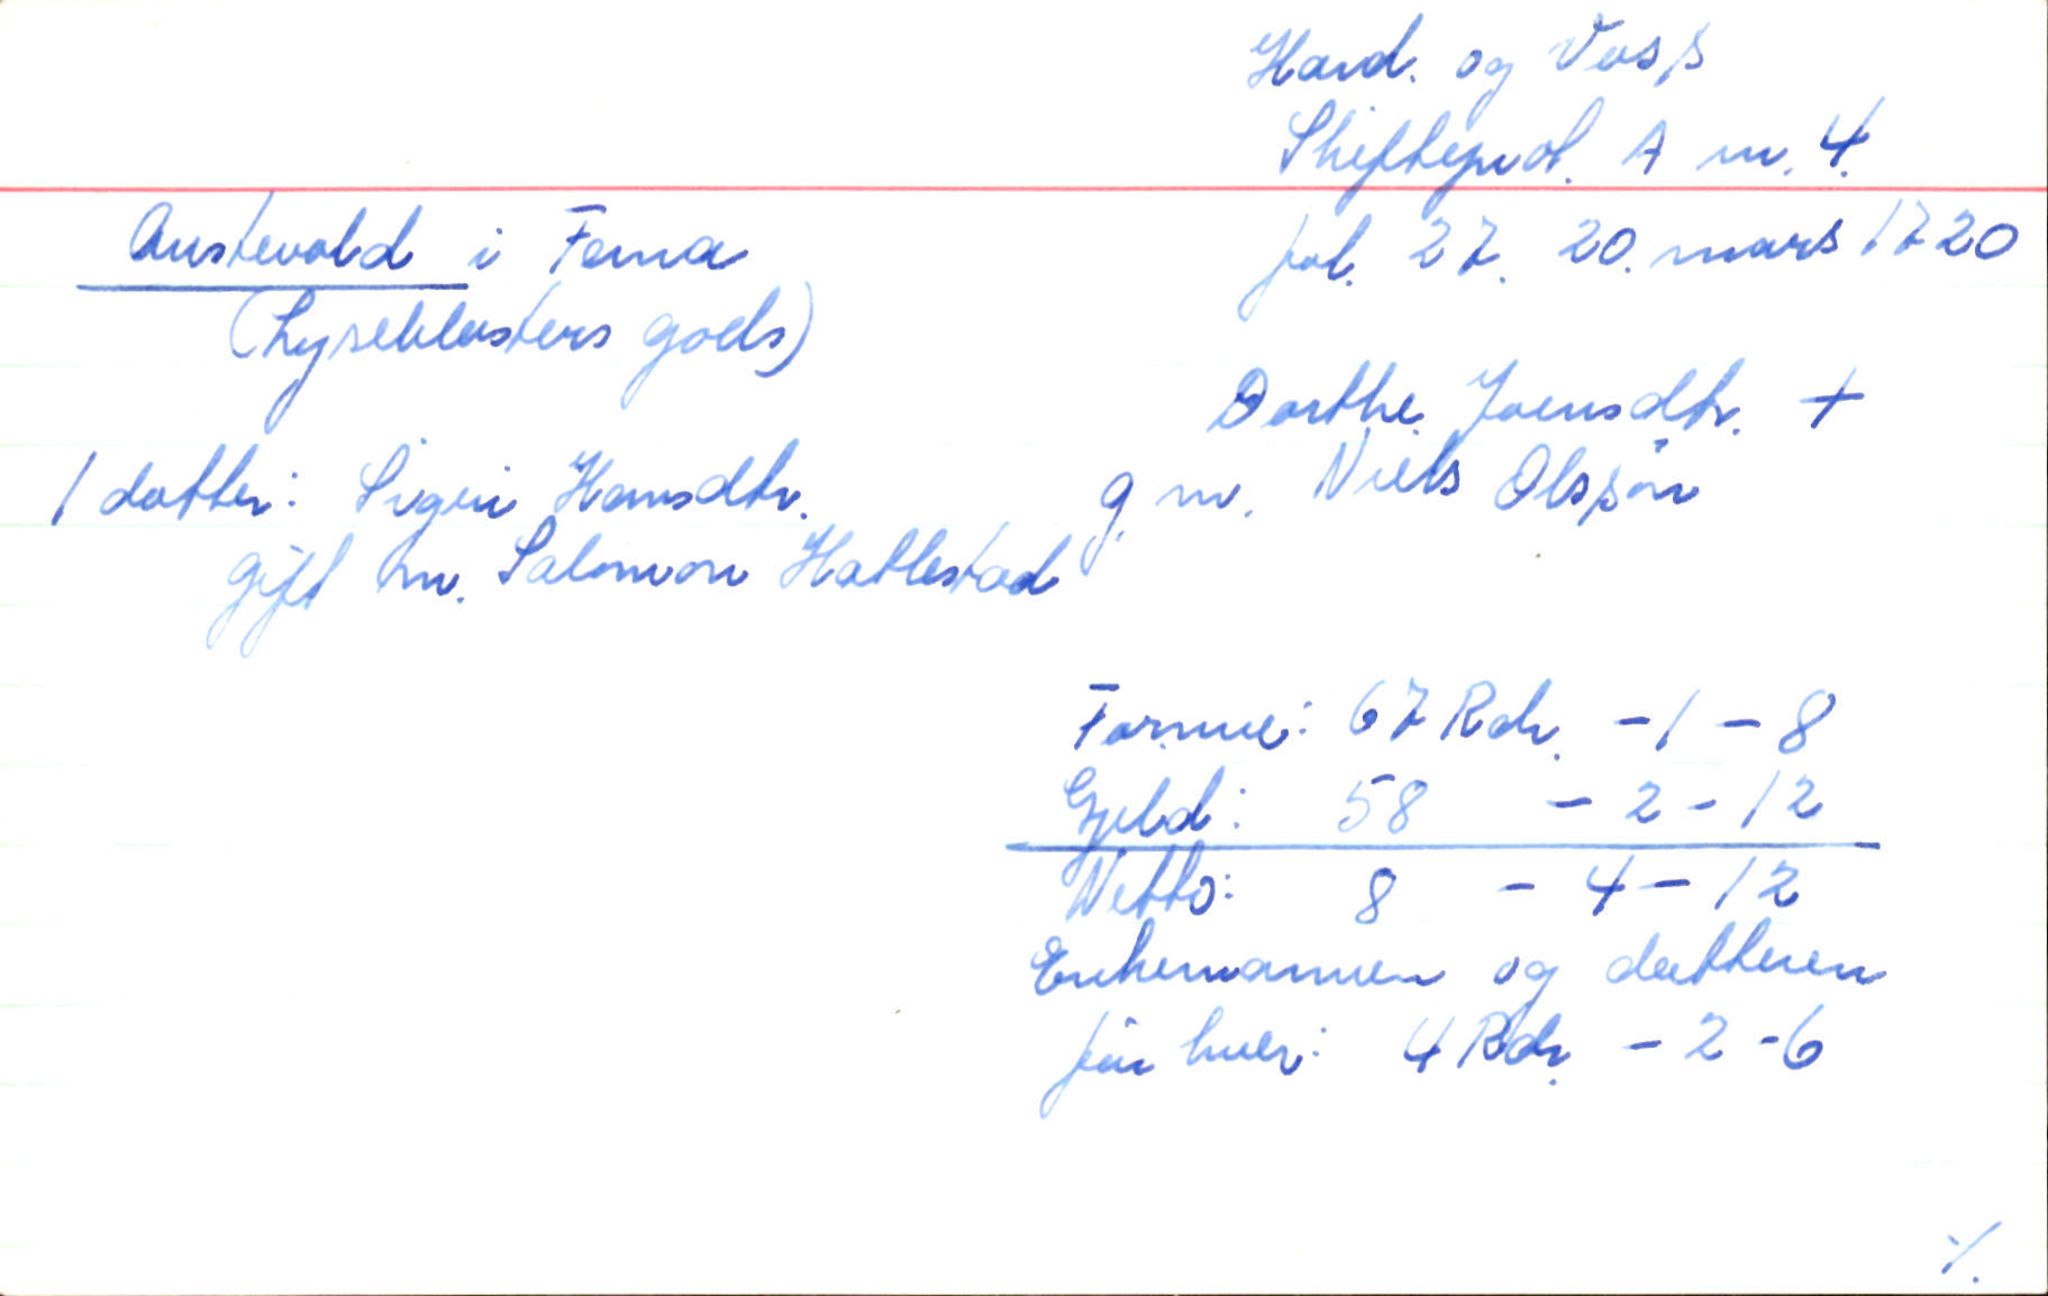 Hard. og Voss
Skifteprot. A nr. 4.
fol. 27. 20. mars 1720
Austevold i Føina
(Lyseklosters gods)
Dorthe Joensdtr. +
g. m. Niels Olssøn
1 datter: Sigri Hansdtr.
gift m. Salomon Hatlestad
Formue: 67 Rdr. - 1 - 8
Gjeld: 58 - 2 - 12
Netto: 8 - 4 - 12
Enkemannen og datteren
får hver: 4 Rdr. - 2 - 6